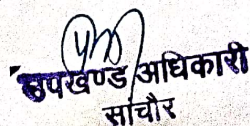 उपखण्ड अधिकारी
सांचौर